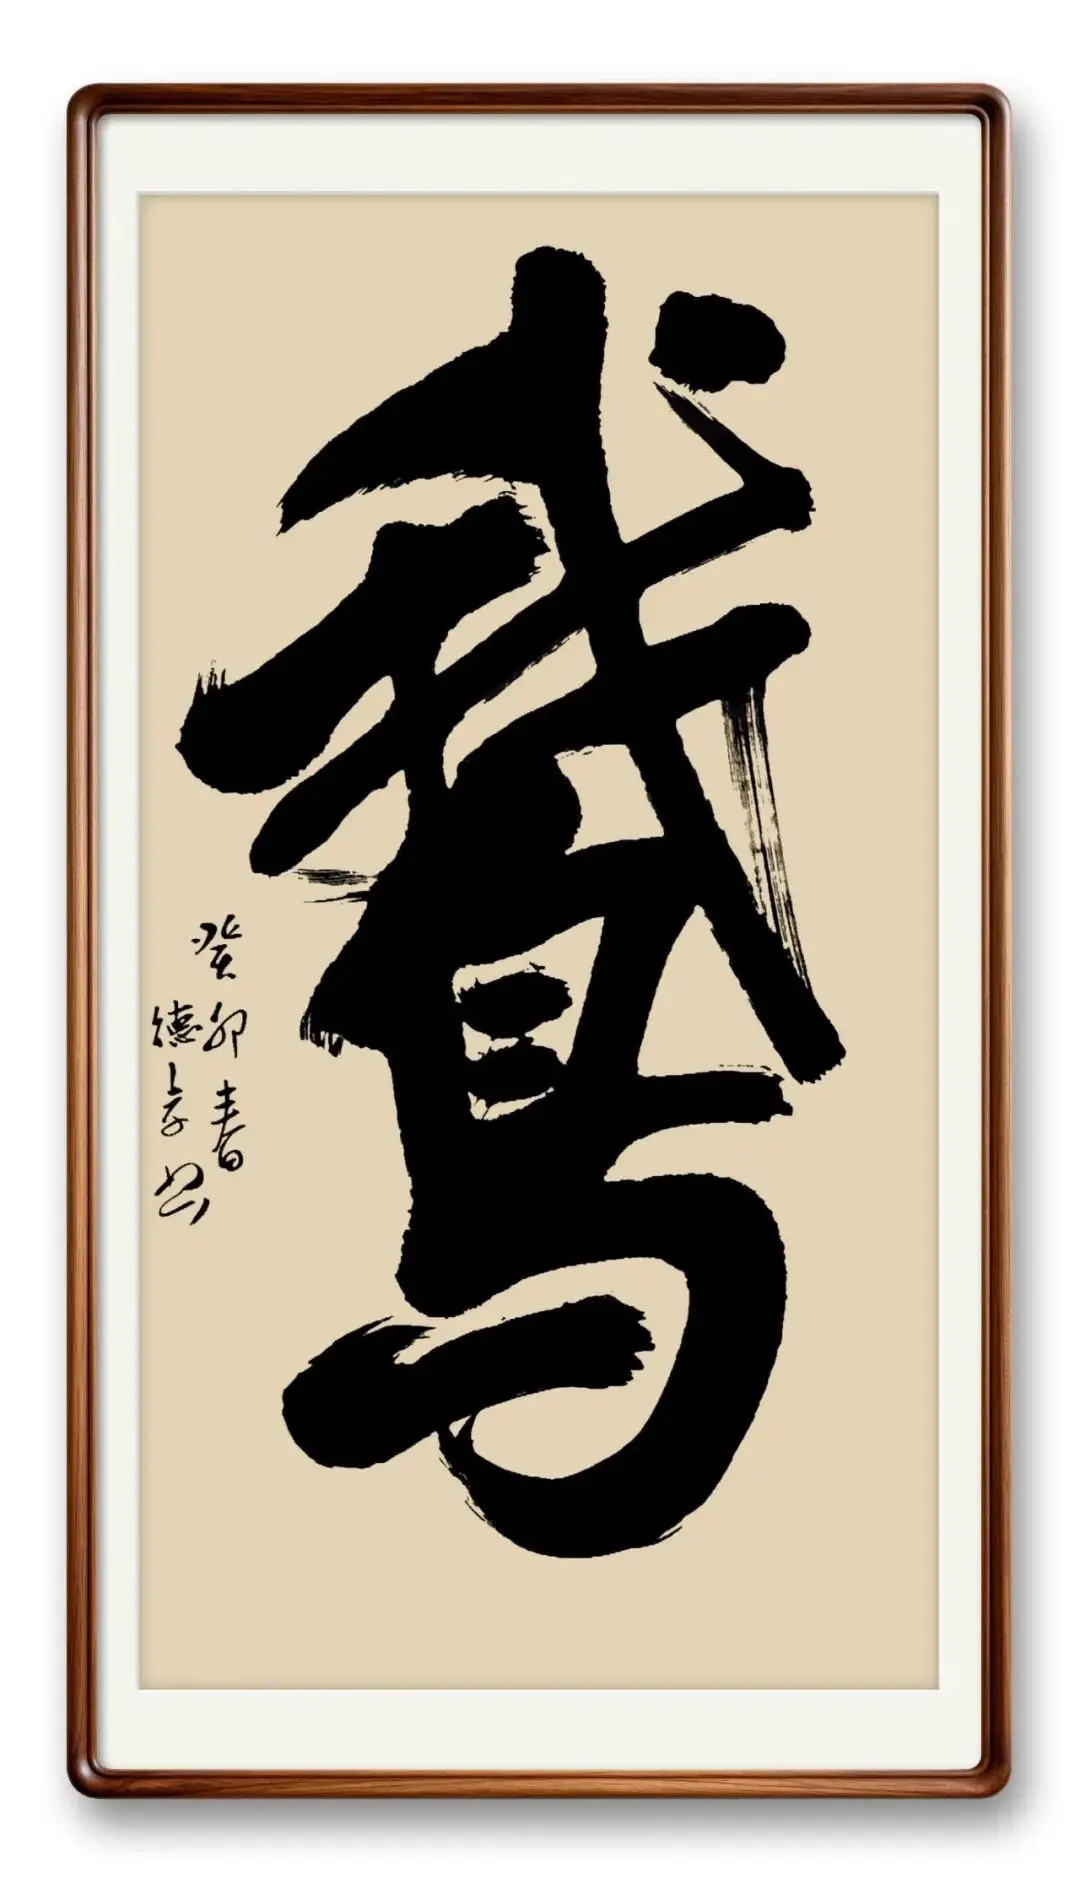 鵞
癸卯春
德孝书